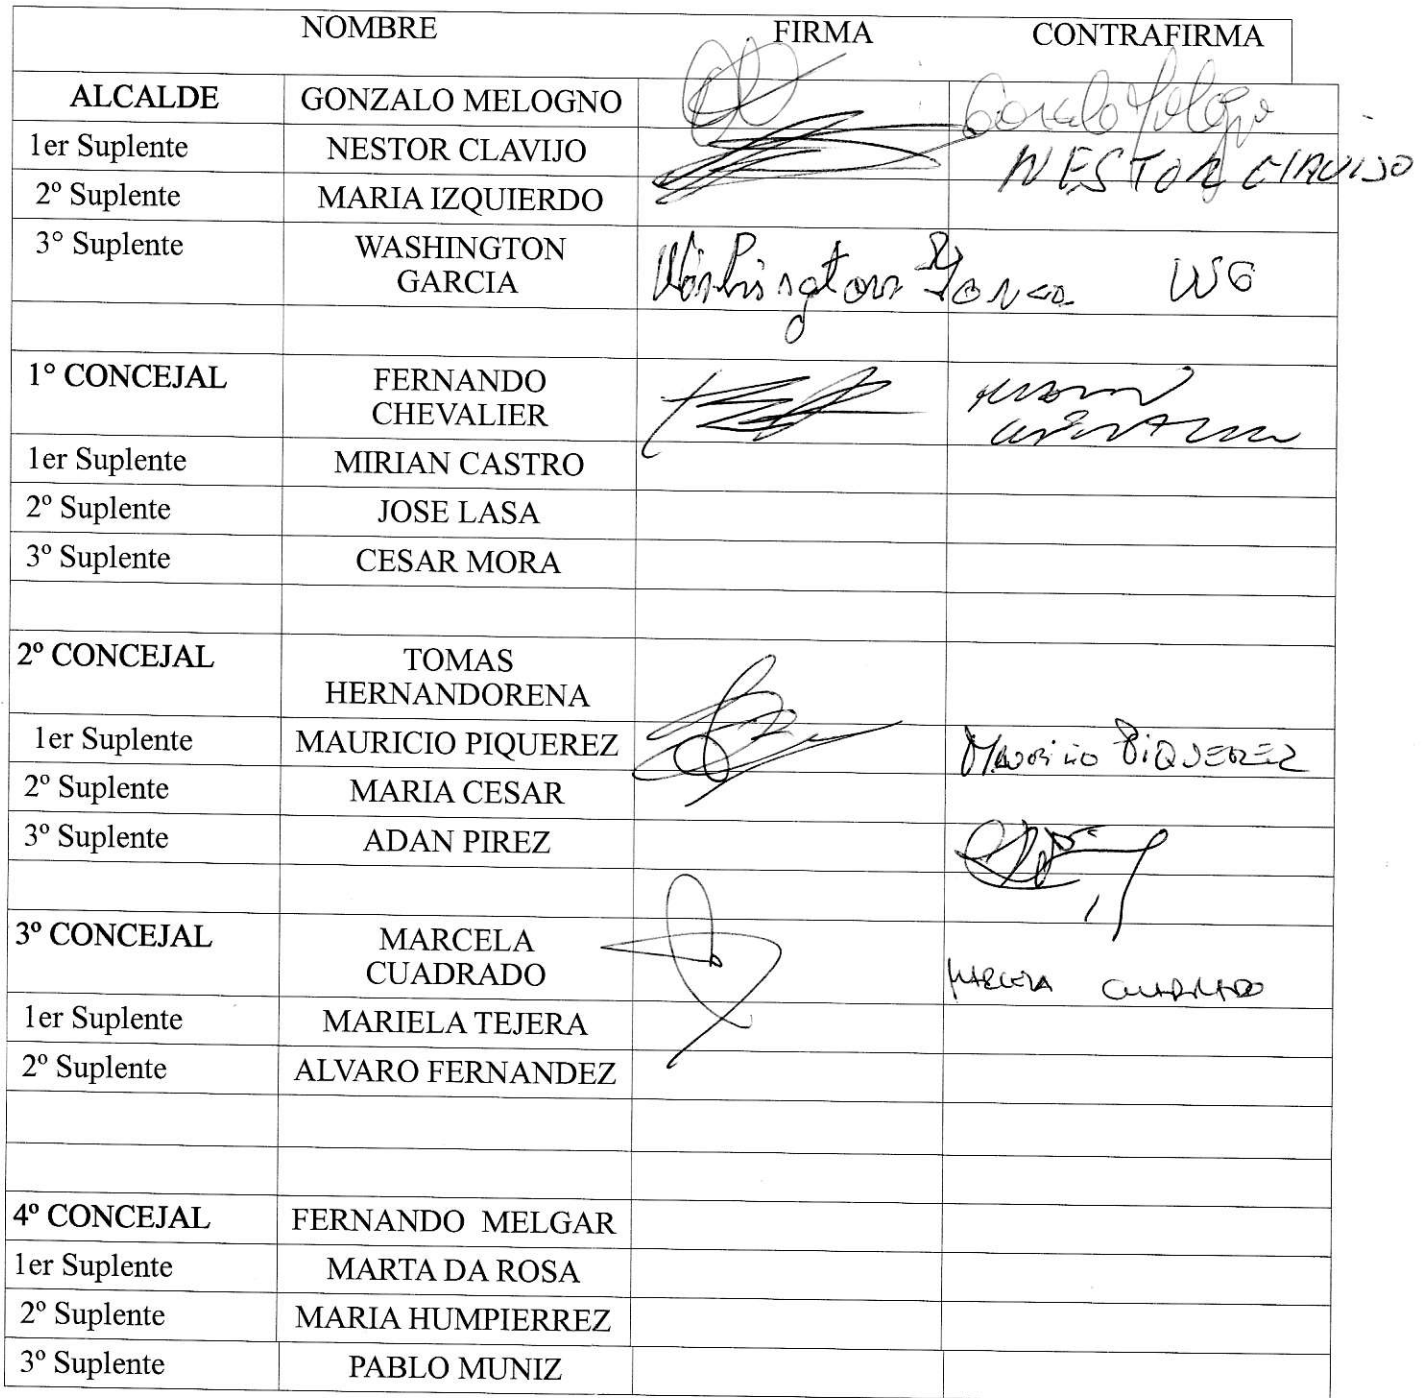 NOMBRE FIRMA CONTRAFIRMA
ALCALDE GONZALO MELOGNO Gonzalo Melogno
1er Suplente NESTOR CLAVIJO NESTOR CLAVIJO
2º Suplente MARIA IZQUIERDO
3° Suplente WASHINGTON
GARCIA Washington Garcia WG
1° CONCEJAL FERNANDO
CHEVALIER
1er Suplente MIRIAN CASTRO
2º Suplente JOSE LASA
3º Suplente CESAR MORA
2º CONCEJAL TOMAS
HERNANDORENA
1er Suplente MAURICIO PIQUEREZ MAURICIO PIQUEREZ
2º Suplente MARIA CESAR
3º Suplente ADAN PIREZ
3º CONCEJAL MARCELA
CUADRADO MARCELA CUADRADO
1er Suplente MARIELA TEJERA
2º Suplente ALVARO FERNANDEZ
4º CONCEJAL FERNANDO MELGAR
1er Suplente MARTA DA ROSA
2º Suplente MARIA HUMPIERREZ
3º Suplente PABLO MUNIZ